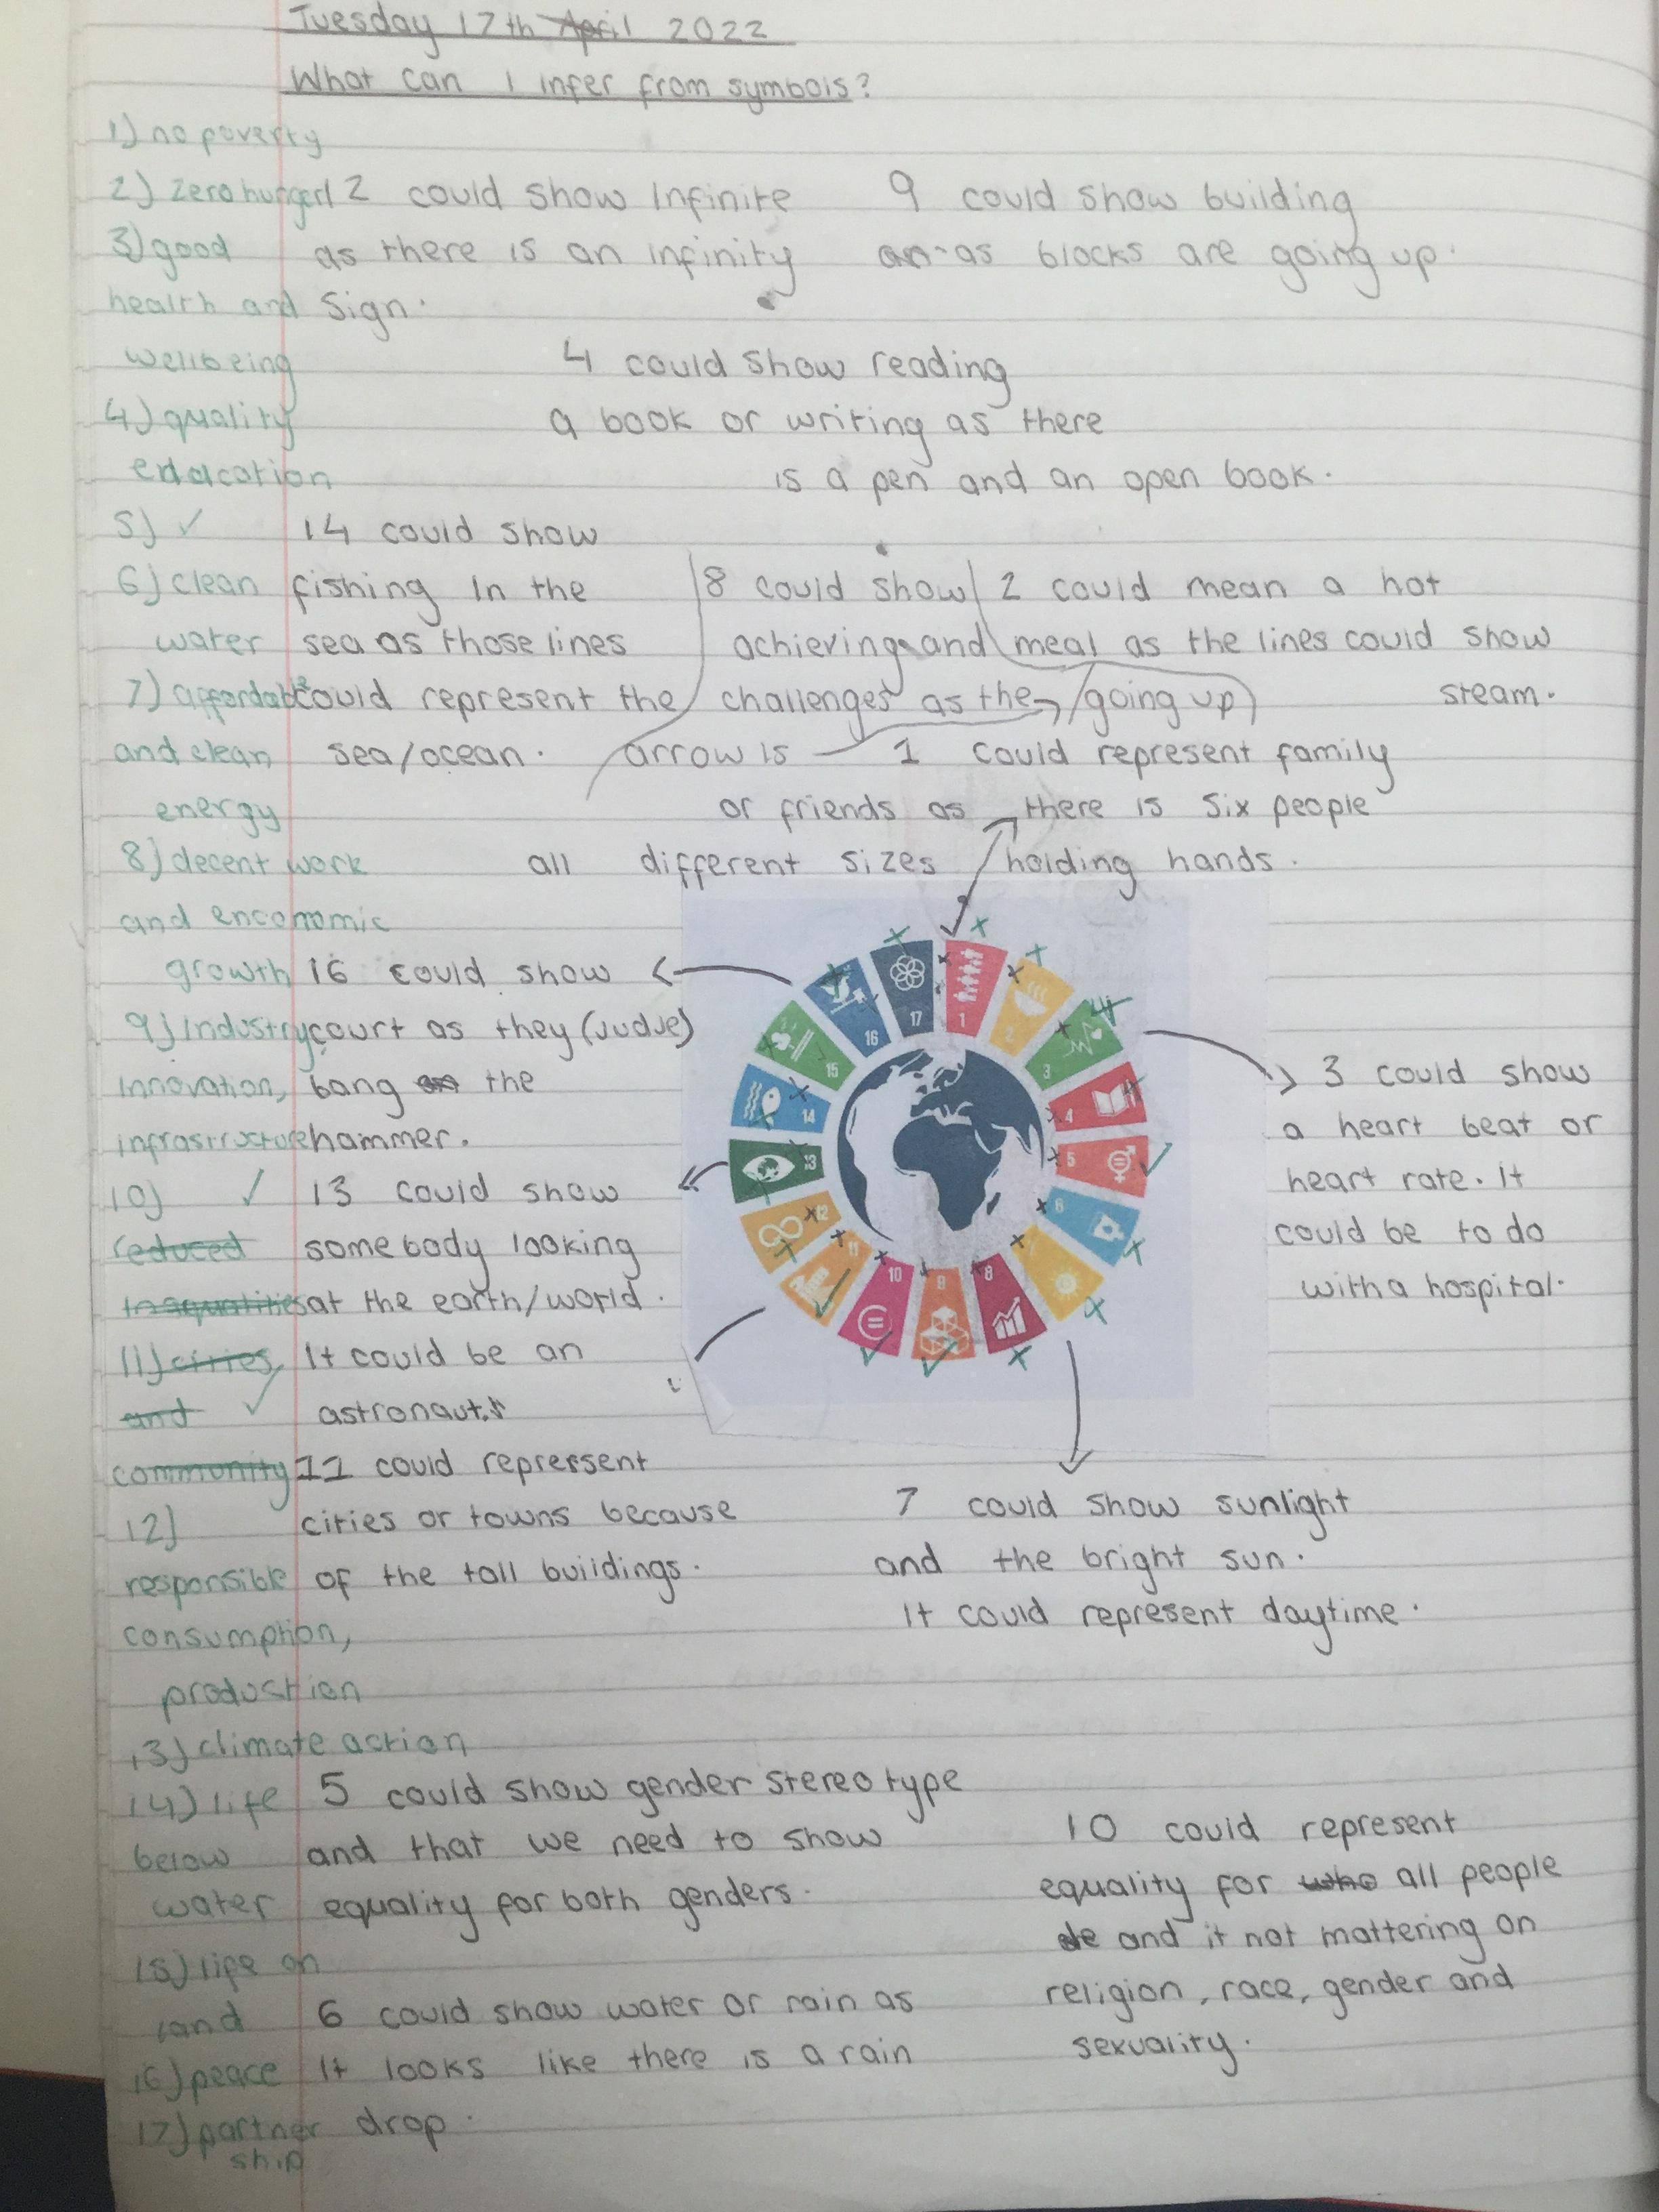 Tuesday 17th April 2022
What can I infer from symbols?
1) no poverty
2) Zero hunger
3) good
health and
wellbeing
4) quality
edacation
5) ✓
6) clean
water
7) affordable
and clean
energy
8) decent work
and enconomic
growth
9) Industry,
Innovation,
infrastructure
10) ✓
reduced
inaqualities
11) cities,
and ✓
community
12)
responsible
consumption,
production
13) climate action
14) life
below
water
15) life on
land
16) peace
17) partner
ship
12 could show Infinite
as there is an infinity
Sign.
9 could show building
as blocks are going up.
4 could show reading
a book or writing as there
is a pen and an open book.
14 could show
fishing in the
sea as those lines
could represent the
sea/ocean.
8 could show
achieving and
challenges as the
arrow is
going up
2 could mean a hot
meal as the lines could show
steam.
1 could represent family
or friends as there is six people
all different sizes holding hands.
16 could show
court as they (Judje)
bang the
hammer.
13 could show
somebody looking
at the earth/world.
It could be an
astronaut.
11 could repressent
cities or towns because
of the tall buildings.
1
2
3
4
5
6
8
9
10
11
12
13
14
15
16
17
3 could show
a heart beat or
heart rate. It
could be to do
with a hospital.
7 could show sunlight
and the bright sun.
It could represent daytime.
5 could show gender stereotype
and that we need to show
equality for both genders.
6 could show water or rain as
It looks like there is a rain
drop.
10 could represent
equality for who all people
and it not mattering on
religion, race, gender and
sexuality.